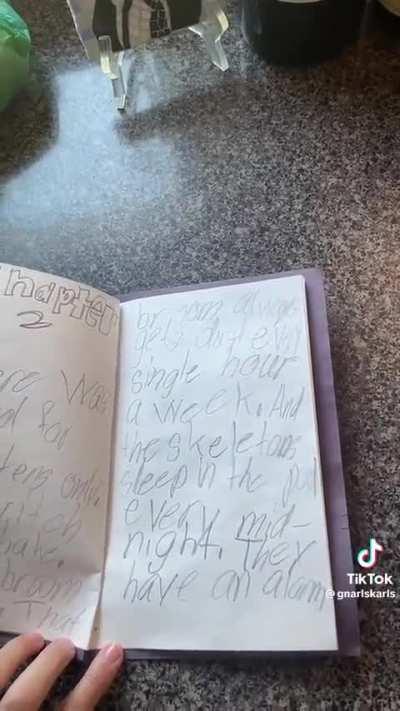 Chapter
2
ere was
for
only.
itch
broom
That
broom always
gets dirty every
single hour
a week. And
the skeletons
sleep in the
every mid-
night. They
have an alarm
TikTok
@gnarlskarls